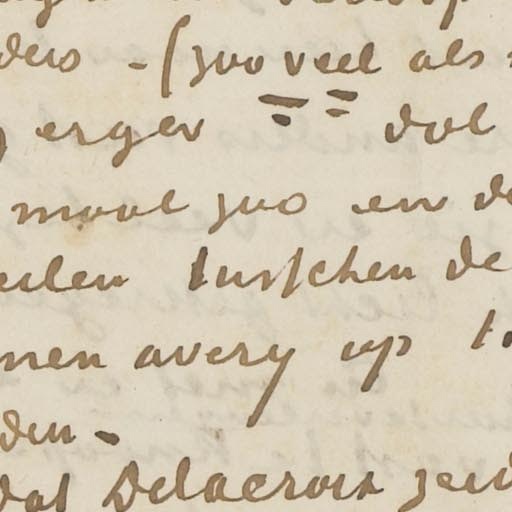 ders – (zoo veel als
erger dat
maal zoo en de
eelen tusschen de
men avery op
den –
dat Delacroix zei